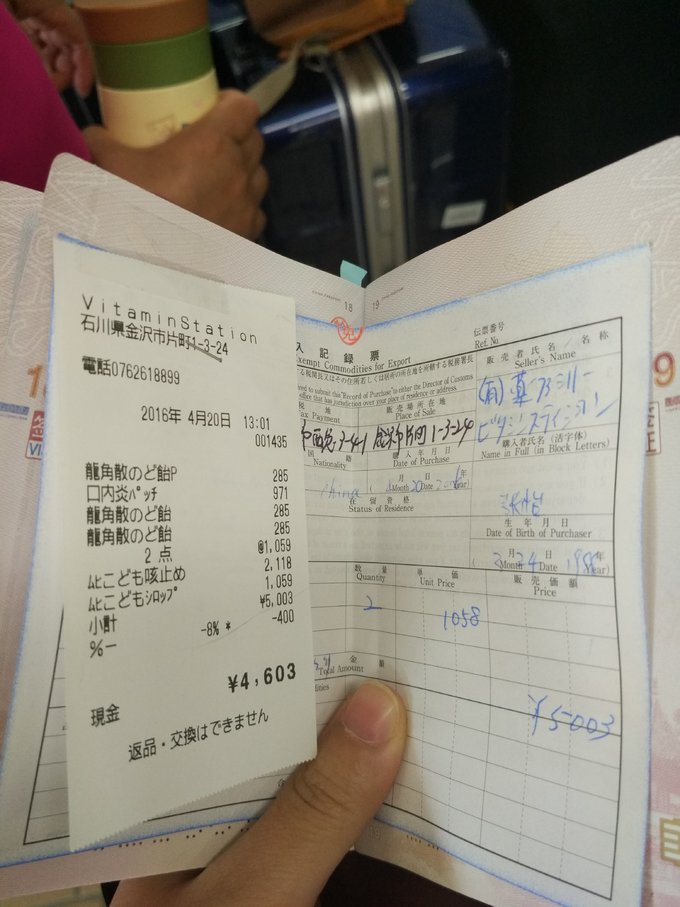 VitaminStation
石川県金沢市片町1-3-24
電話0762618899
2016年 4月20日 13:01
001435
龍角散のど飴P 285
口内炎パッチ 971
龍角散のど飴 285
龍角散のど飴 285
2 点 @1,059
ムヒこども咳止め 2,118
ムヒこどもシロップ 1,059
小計 ¥5,003
%- -8% * -400
¥4,603
現金
返品・交換はできません
18
19
入記録票
Exempt Commodities for Export
伝票番号
Ref. No.
販売者氏名/名称
Seller's Name
税地
Tax Payment
販売場所在地
Place of Sale
3-4-1
金沢市片町1-3-24
(有)
ビタミンステイション
国籍
Nationality
購入年月日
Date of Purchase
購入者氏名(活字体)
Name in Full (in Block Letters)
China
4 Month 20 Date 2016 Year)
在留資格
Status of Residence
生年月日
Date of Birth of Purchaser
月 日 年
Month 24 Date Year)
数量
Quantity
単価
Unit Price
販売価額
Price
2
1058
金額
Total Amount
¥5003
19